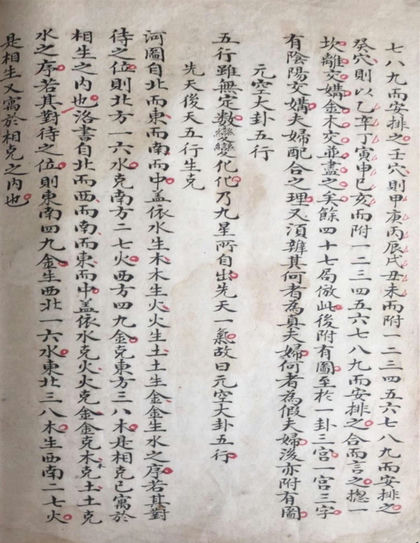 七八九而安排之壬穴則甲庚丙辰戌丑未而附一二三四五六七八九而安排之
癸穴則以乙辛丁寅申巳亥而附一二三四五六七八九而安排之合而言之摠一
坎離交媾金木交並盡之矣餘四十七局倣此後附有圖至於一卦三宮一宮三字
有陰陽交媾夫婦配合之理又須辨其何者為真夫婦何者為假夫婦後亦附有圖
元空大卦五行
五行雖無定数變變化化乃九星所自出先天一氣故曰元空大卦五行
先天後天五行生克
河圖自北而東而南而中盖依水生木木生火火生土土生金金生水之序若其對
待之位則北方一六水克南方二七火西方四九金克東方三八木是相克已寓於
相生之內也洛書自北而西而南而東而中盖依水克火火克金金克木木克土土克
水之序若其對待之位則東南四九金生西北一六水東北三八木生西南二七火
是相生又寓於相克之內也